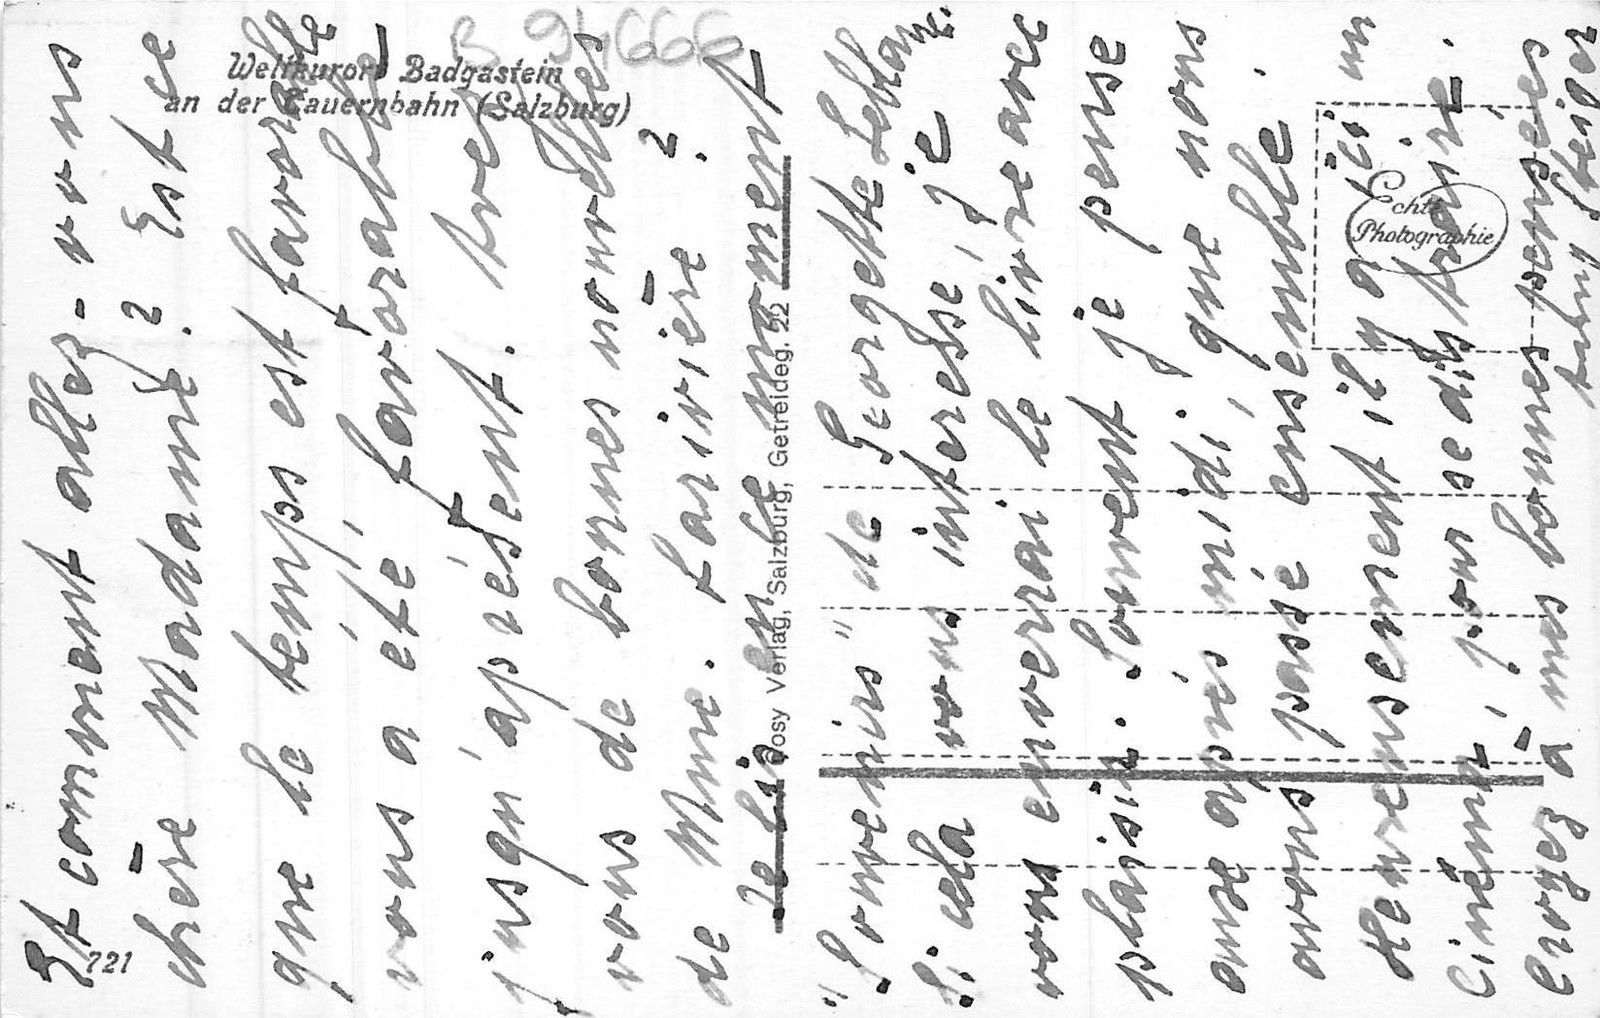 B 94666
Weltkurort Badgastein
an der Tauernbahn (Salzburg)
Echte
Photographie
721
Cosy Verlag, Salzburg, Getreideg. 22
Et comment allez-vous
chère Madame? Est ce
que le temps est favorable
vous a été favorable
jusqu'à présent. Avez
vous de bonnes nouvelles
de Mme. Larivière?
Je lis en le moment
"Souvenirs" de Georgette Leblanc.
Si cela vous interesse, je
vous enverrai le livre avec
plaisir. Souvent je pense
aux après midi, que nous
avons passé ensemble.
Heureusement il y a ici un
Cinéma, pour se distraire.
Croyez à mes bonnes pensées
Steiger